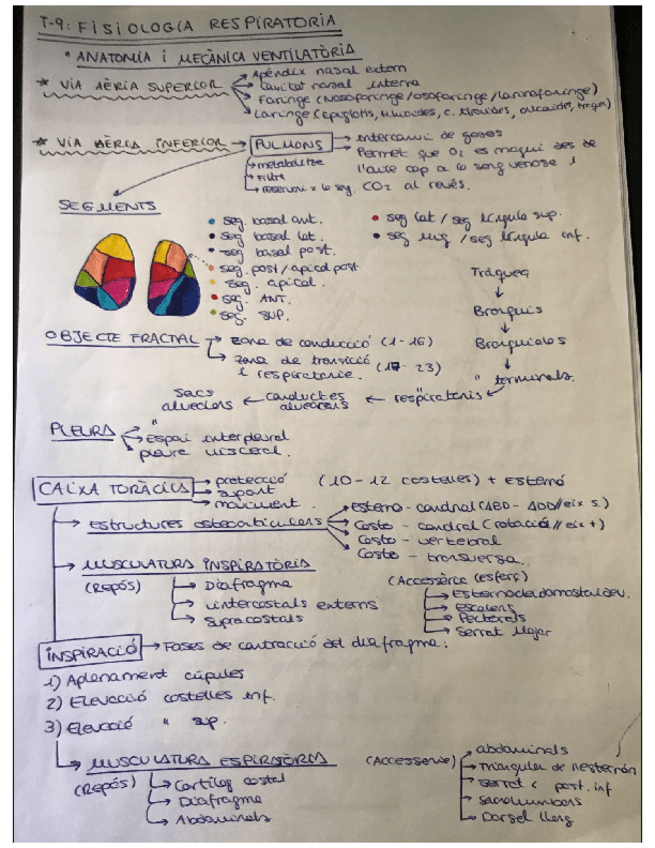 T-9: FISIOLOGIA RESPIRATORIA
• ANATOMIA i MECÀNICA VENTILATÒRIA
* VIA AÈRIA SUPERIOR → Apéndix nasal extern
→ Cavitat nasal interna
→ Faringe (nasofaringe/orofaringe/laringofaringe)
→ Laringe (epiglotis, c. tiroides,
* VIA AÈRIA INFERIOR → PULMONS → intercanvi de gasos
→ Permet que O2 es mogui des de
l'aire cap a la sang venosa i
CO2 al revés.
→ metabolitza
→ Filtre
→ reservori x la sang.
SEGMENTS
• seg. basal ant.
• seg. basal lat.
• seg. basal post.
• seg. post/apical post
• seg. apical.
• seg. ANT.
• seg. SUP.
• seg lat / seg língula sup.
• seg mig / seg língula inf.
Tràquea
↓
Bronquis
↓
Bronquiolos
↓
" terminals.
← respiratoris
← conductes alveolars
← sacs alveolars
OBJECTE FRACTAL → zona de conducció (1-16)
→ zona de transició (17-23)
i respiratoria.
PLEURA → "
→ Espai interpleural
→ pleura visceral.
CAIXA TORÀCICA → protecció (10-12 costelles) + Esternó
→ suport
→ moviment.
→ estructures osteoarticulars → Esterno-condral (ABD - ADD//eix s.)
→ Costo - condral (rotació // eix +)
→ Costo - vertebral
→ Costo - transversa..
→ MUSCULATURA INSPIRATÒRIA
(Repós) → Diafragma
→ intercostals externs
→ Supracostals
(Accessòria (esforç)
→ Esternocleidomastoideu.
→ Escalens
→ Pectorals
→ Serrat Major
INSPIRACIÓ → Fases de contracció del diafragma:
1) Aplanament cúpules
2) Elevació costelles inf.
3) Elevació " sup.
→ MUSCULATURA ESPIRATÒRIA
(Repós) → Cartílag costal
→ Diafragma
→ Abdominals
(Accessoria) → abdominals
→ Triangular de l'esternón
→ Serrat < post. inf
→ Sacrolumbars
→ Dorsal llarg